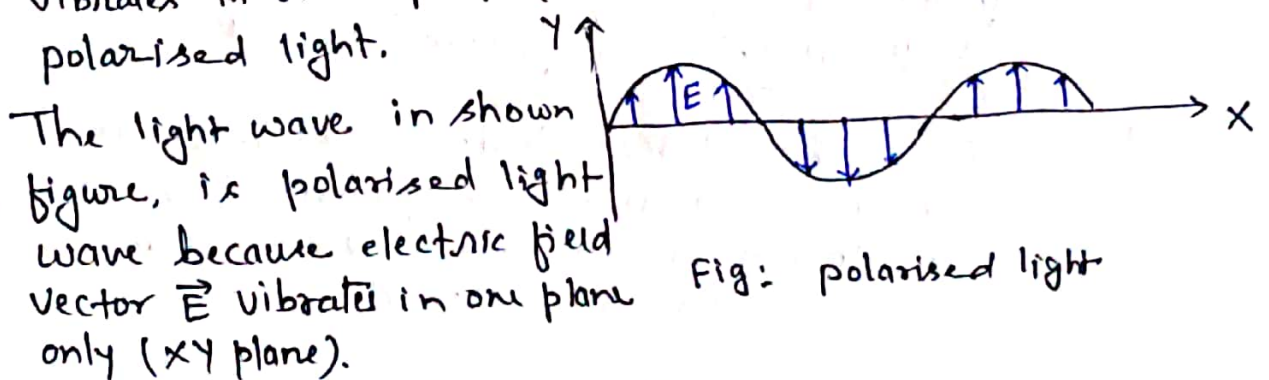 polarised light.
The light wave in shown
figure, is polarised light
wave because electric field
vector E⃗ vibrates in one plane
only (XY plane).
Y
E
X
Fig: polarised light